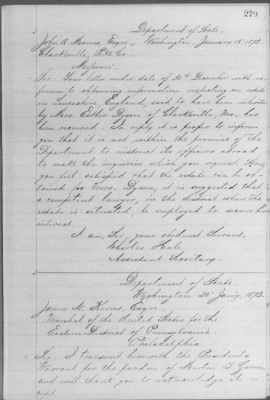 279
Department of State,
Washington, January 18, 1873.
John R. Esque,
Clarksville,
Missouri.
Sir: Your letter under date of Decmber with re-
ference to obtaining information respecting an estate
in Lancashire England, said to have been
by Mrs. Esther Dyson of Clarksville, Mo. has
been received. In reply it is proper to inform
you that it is not within the province of the
Department to instruct its officers abroad
to make the inquiries which you request. If
you feel satisfied that the estate can be ob-
tained for Mrs. Dyson, it is suggested that
a competent lawyer, in the district where the
estate is situated, be employed to secure her
interest.
I am, Sir, your obedient Servant,
Charles Hale,
Assistant Secretary.
Department of State.
Washington 20 Jan'y, 1873.
James N. Kerns, Esqre
Marshal of the United States for the
Eastern District of Pennsylvania
Philadelphia
Sir: I transmit herewith the President's
Warrant for the pardon of
and will thank you to acknowledge its re-
ceipt.